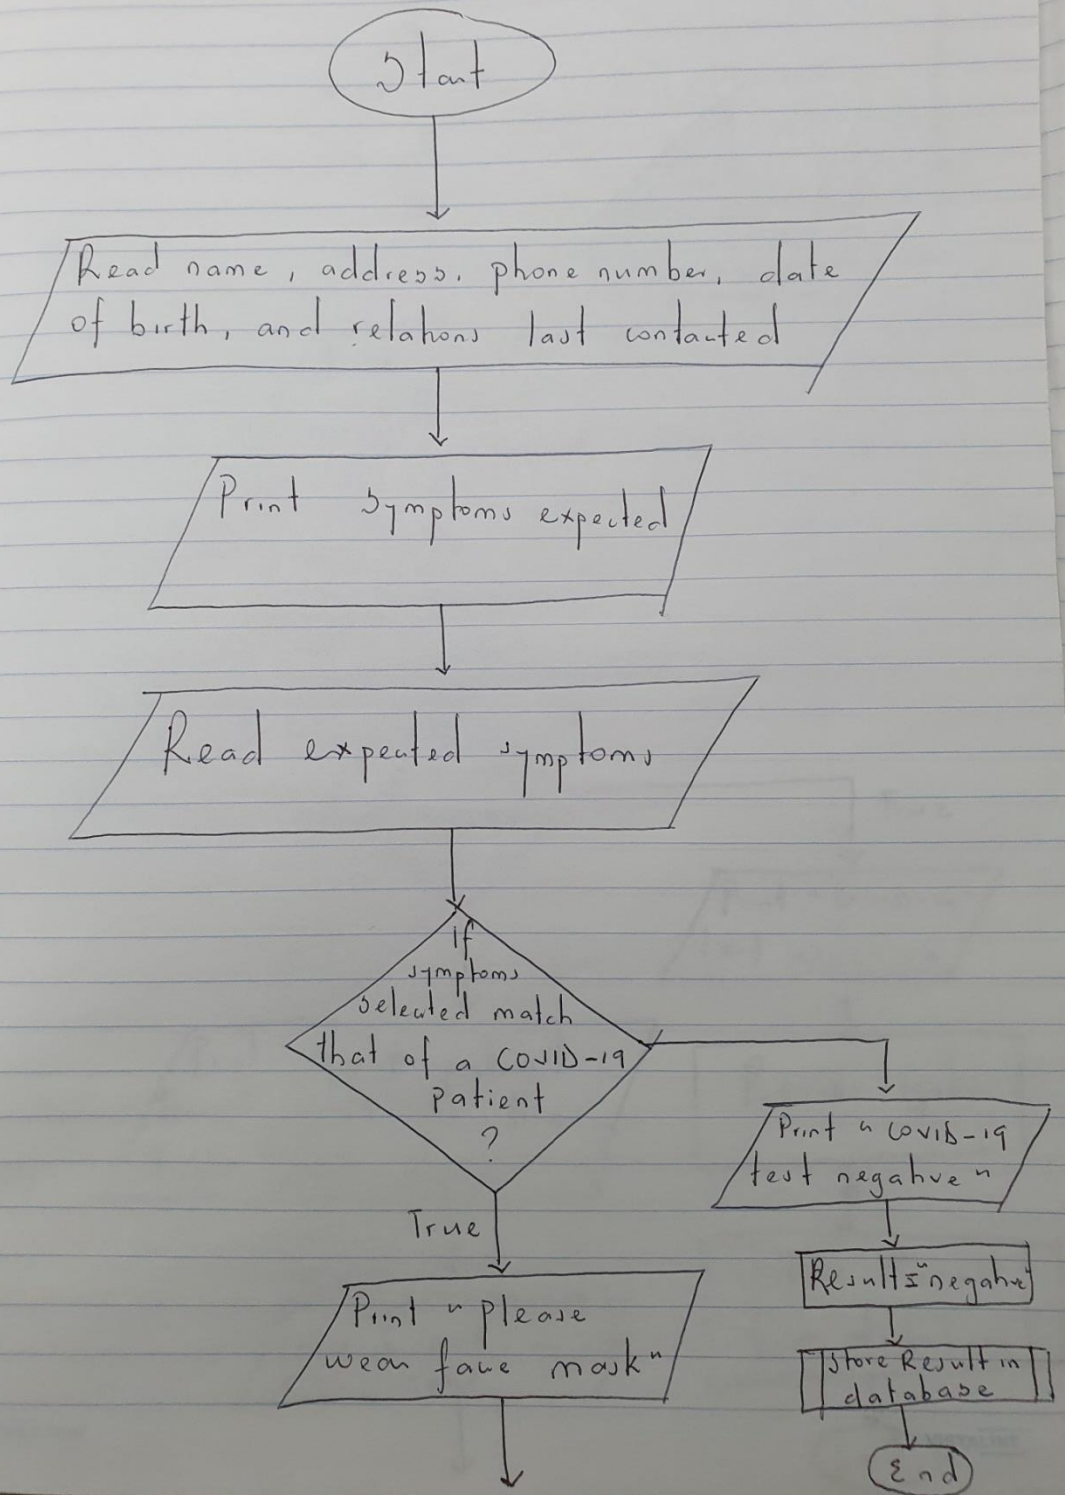 Start
Read name, address, phone number, date
of birth, and relations last contacted
Print symptoms expected
Read expected symptoms
if
symptoms
selected match
that of a COVID-19
patient
?
True
Print "please
wear face mask"
Print "COVID-19
test negative"
Result = "negative"
Store Result in
database
End